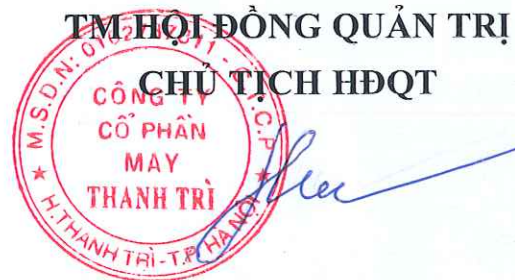 TM.HỘI ĐỒNG QUẢN TRỊ
CHỦ TỊCH HĐQT
CÔNG TY
CỔ PHẦN
MAY
THANH TRÌ
H.THANH TRÌ-T.P HÀ NỘI